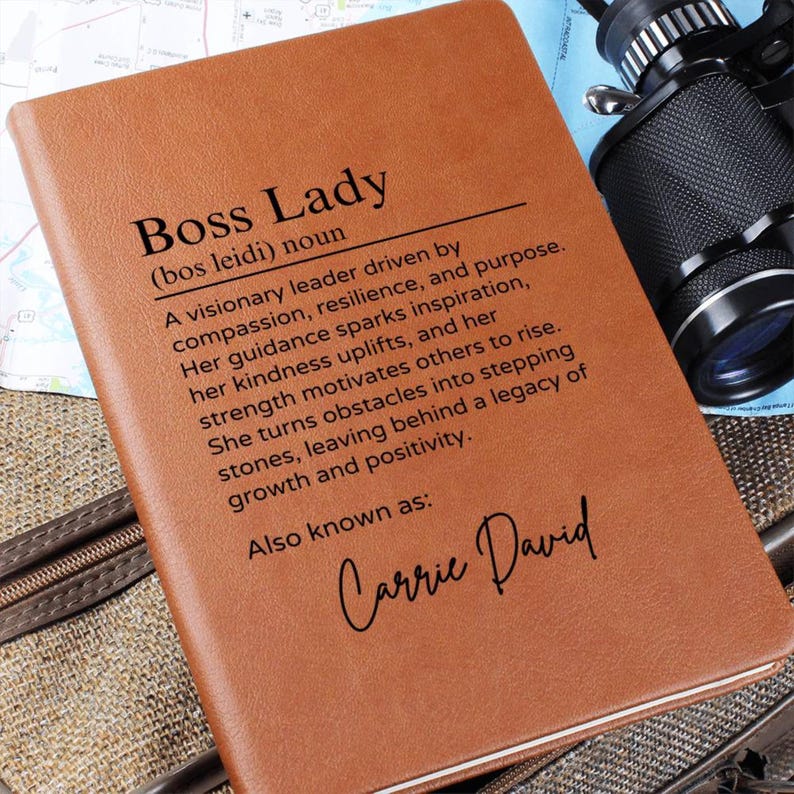 Boss Lady
(bos leidi) noun
A visionary leader driven by
compassion, resilience, and purpose.
Her guidance sparks inspiration,
her kindness uplifts, and her
strength motivates others to rise.
She turns obstacles into stepping
stones, leaving behind a legacy of
growth and positivity.
Also known as:
Carrie David